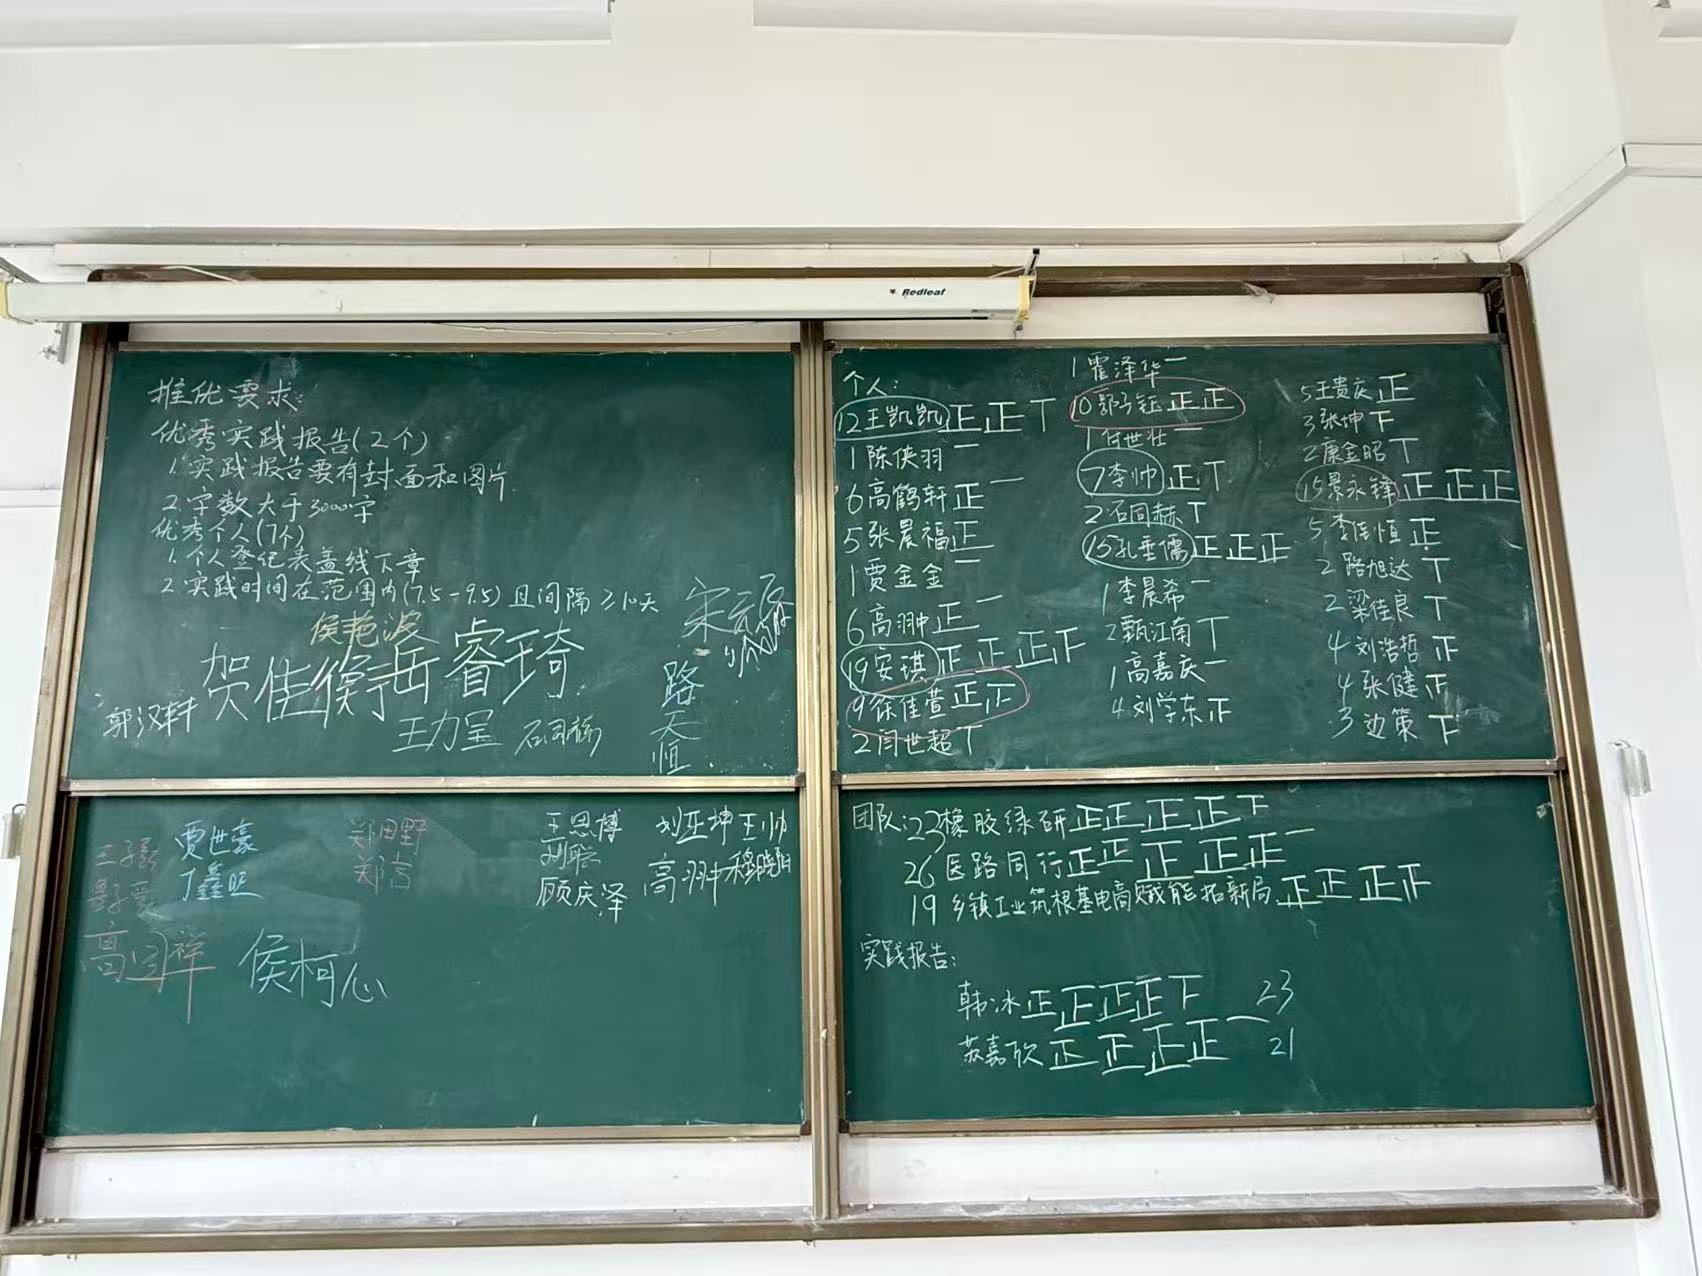 Redleaf
推优要求:
优秀实践报告(2个)
1.实践报告要有封面和图片
2.字数大于3000字
优秀个人(7个)
1.个人登纪表盖线下章
2.实践时间在范围内(7.5-9.5)且间隔≥10天
侯艳波
贺佳衡
岳睿琦
郭汉轩
王力呈
路天恒
贾世豪
丁鑫旺
郑田野
王思博
刘聪
顾庆泽
刘亚坤
王帅
高羽中
穆晓阳
侯柯心
个人:
12王凯凯正正丅
1陈侠羽一
6高鹤轩正一
5张晨福正
1贾金金一
6高翀正一
19安琪正正正正
9徐佳萱正正
2闫世超丅
1霍泽华一
10郭子钰正正
1付世壮一
7李帅正丅
2石同赫丅
15孔垂儒正正正
1李晨希一
2甄江南丅
1高嘉庆一
4刘学东正
5王贵庆正
3张坤下
2康金昭丅
15景永锋正正正
5李佳恒正
2路旭达丅
2梁佳良丅
4刘浩哲正
4张健正
3边策下
团队:23橡胶绿研正正正正下
26医路同行正正正正正一
19乡镇工业筑根基电商赋能拓新局正正正正
实践报告:
韩冰正正正正下 23
苏嘉欣正正正正一 21